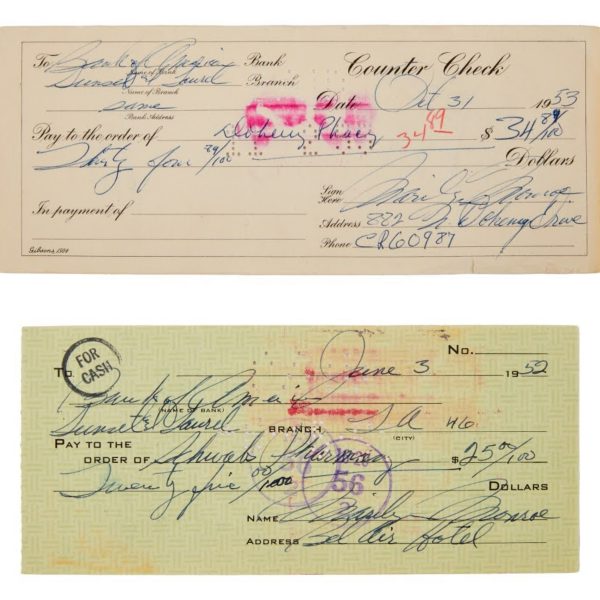 To Bank of America Bank Counter Check
Name of Bank
Sunset & Laurel Branch
Name of Branch
Date Oct 31 1953
same
Bank Address
Pay to the order of Doheny Phcy 34 89 $ 34 89/100
Thirty four 89/100 Dollars
Sign Here Marilyn Monroe
In payment of
Address 882 N Doheny Drive
Phone CR60987
Gibsons, 1504
FOR CASH
No.
June 3 1952
To Bank of America
(NAME OF BANK)
Sunset & Laurel BRANCH, LA 46
(CITY)
PAY TO THE
ORDER OF Schwab Pharmacy $25 00/100
Twenty five 00/1000 DOLLARS
56
NAME Marilyn Monroe
ADDRESS Bel Air Hotel